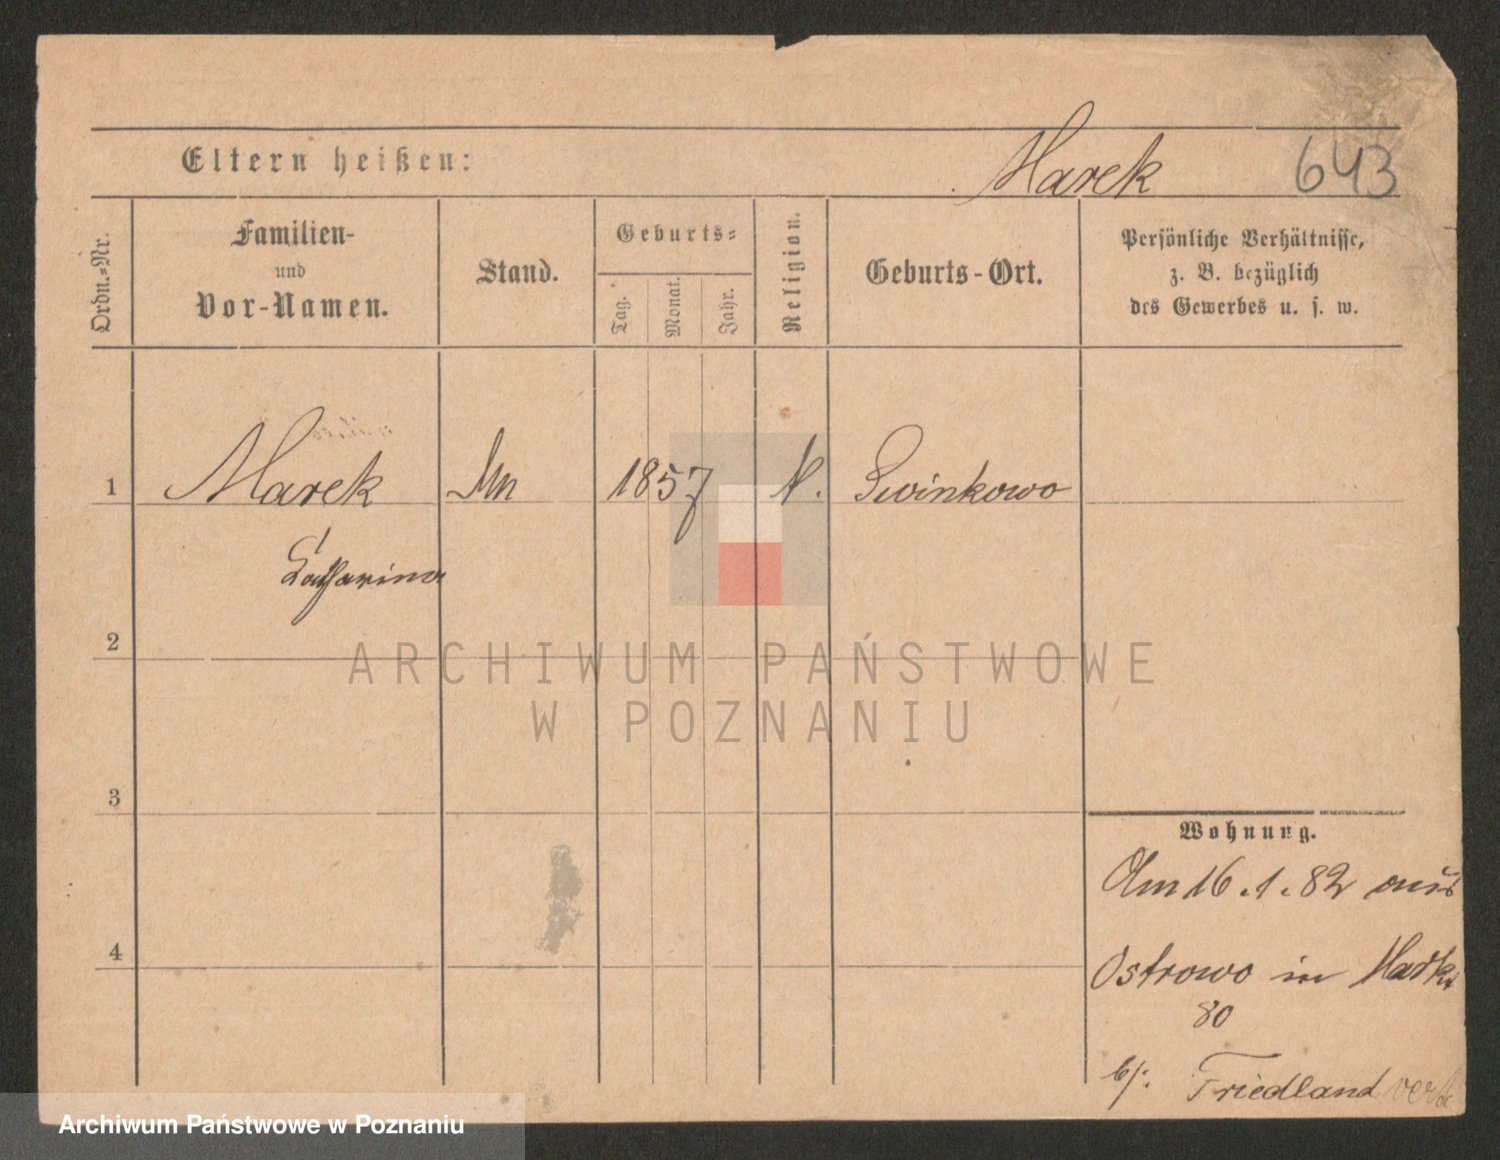 Eltern heißen:
Marek
643
Ordn.=Nr.
Familien-
und
Vor-Namen.
Stand.
Geburts=
Tag.
Monat.
Jahr.
Religion.
Geburts-Ort.
Persönliche Verhältnisse,
z. B. bezüglich
des Gewerbes u. s. w.
1
Marek
1857
Swinkowo
Catharina
2
ARCHIWUM PAŃSTWOWE
W POZNANIU
3
Wohnung.
Am 16.1.82 aus
4
Ostrowo in
80
b/: Friedland
Archiwum Państwowe w Poznaniu